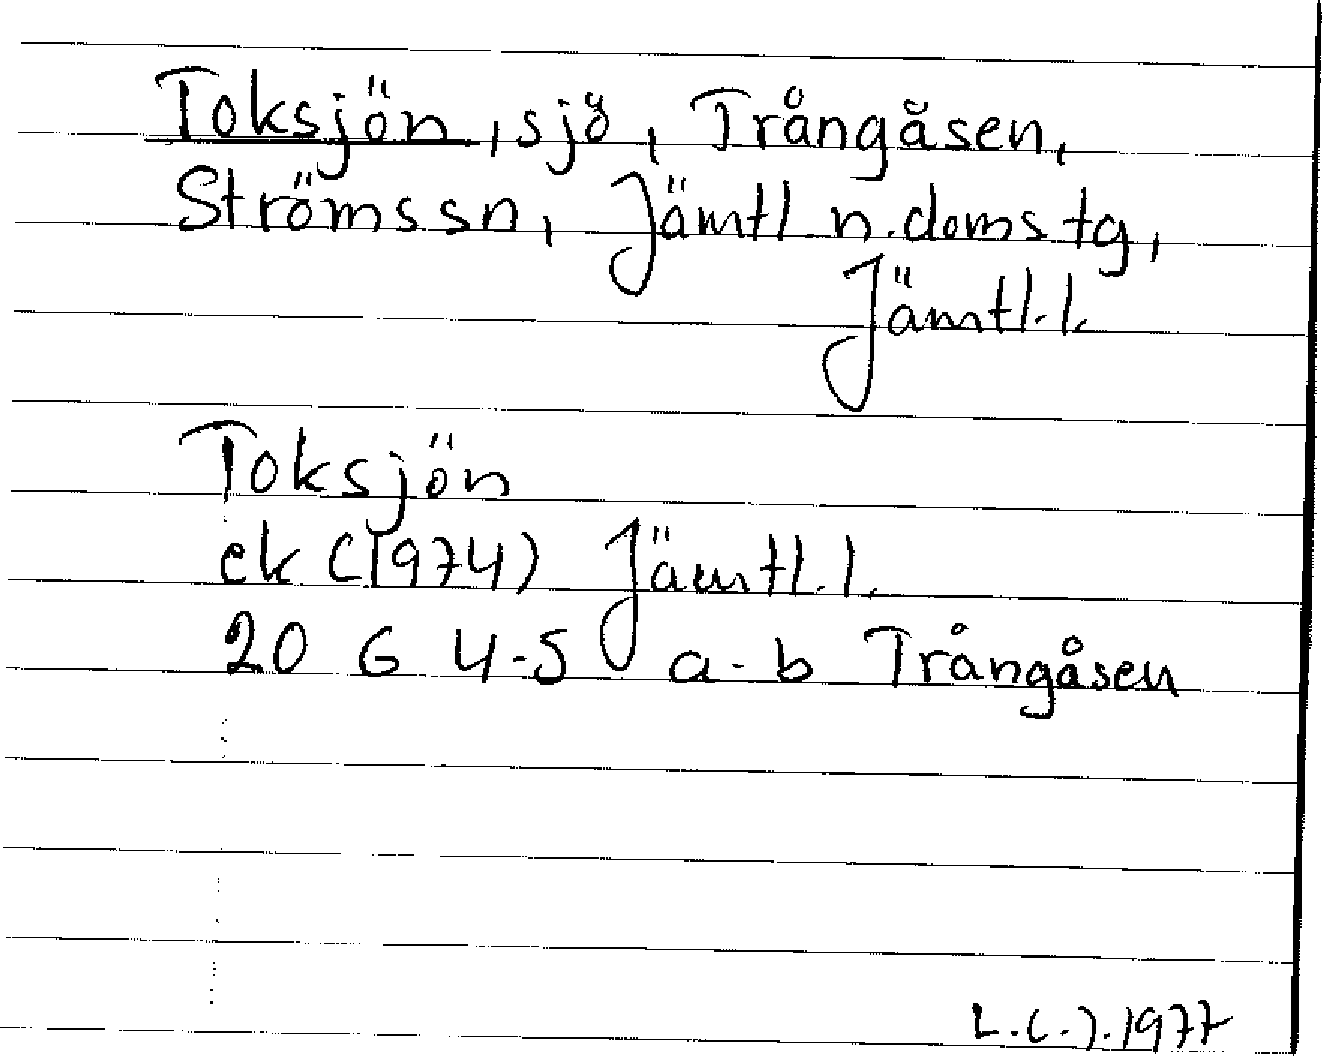 Toksjön, sjö, Trångåsen,
Ströms sn, Jämtl n. doms tg,
Jämtl. l.
Toksjön
ek (1974) Jämtl. l.
20 G 4-5 a-b Trångåsen
L.C.J. 1977